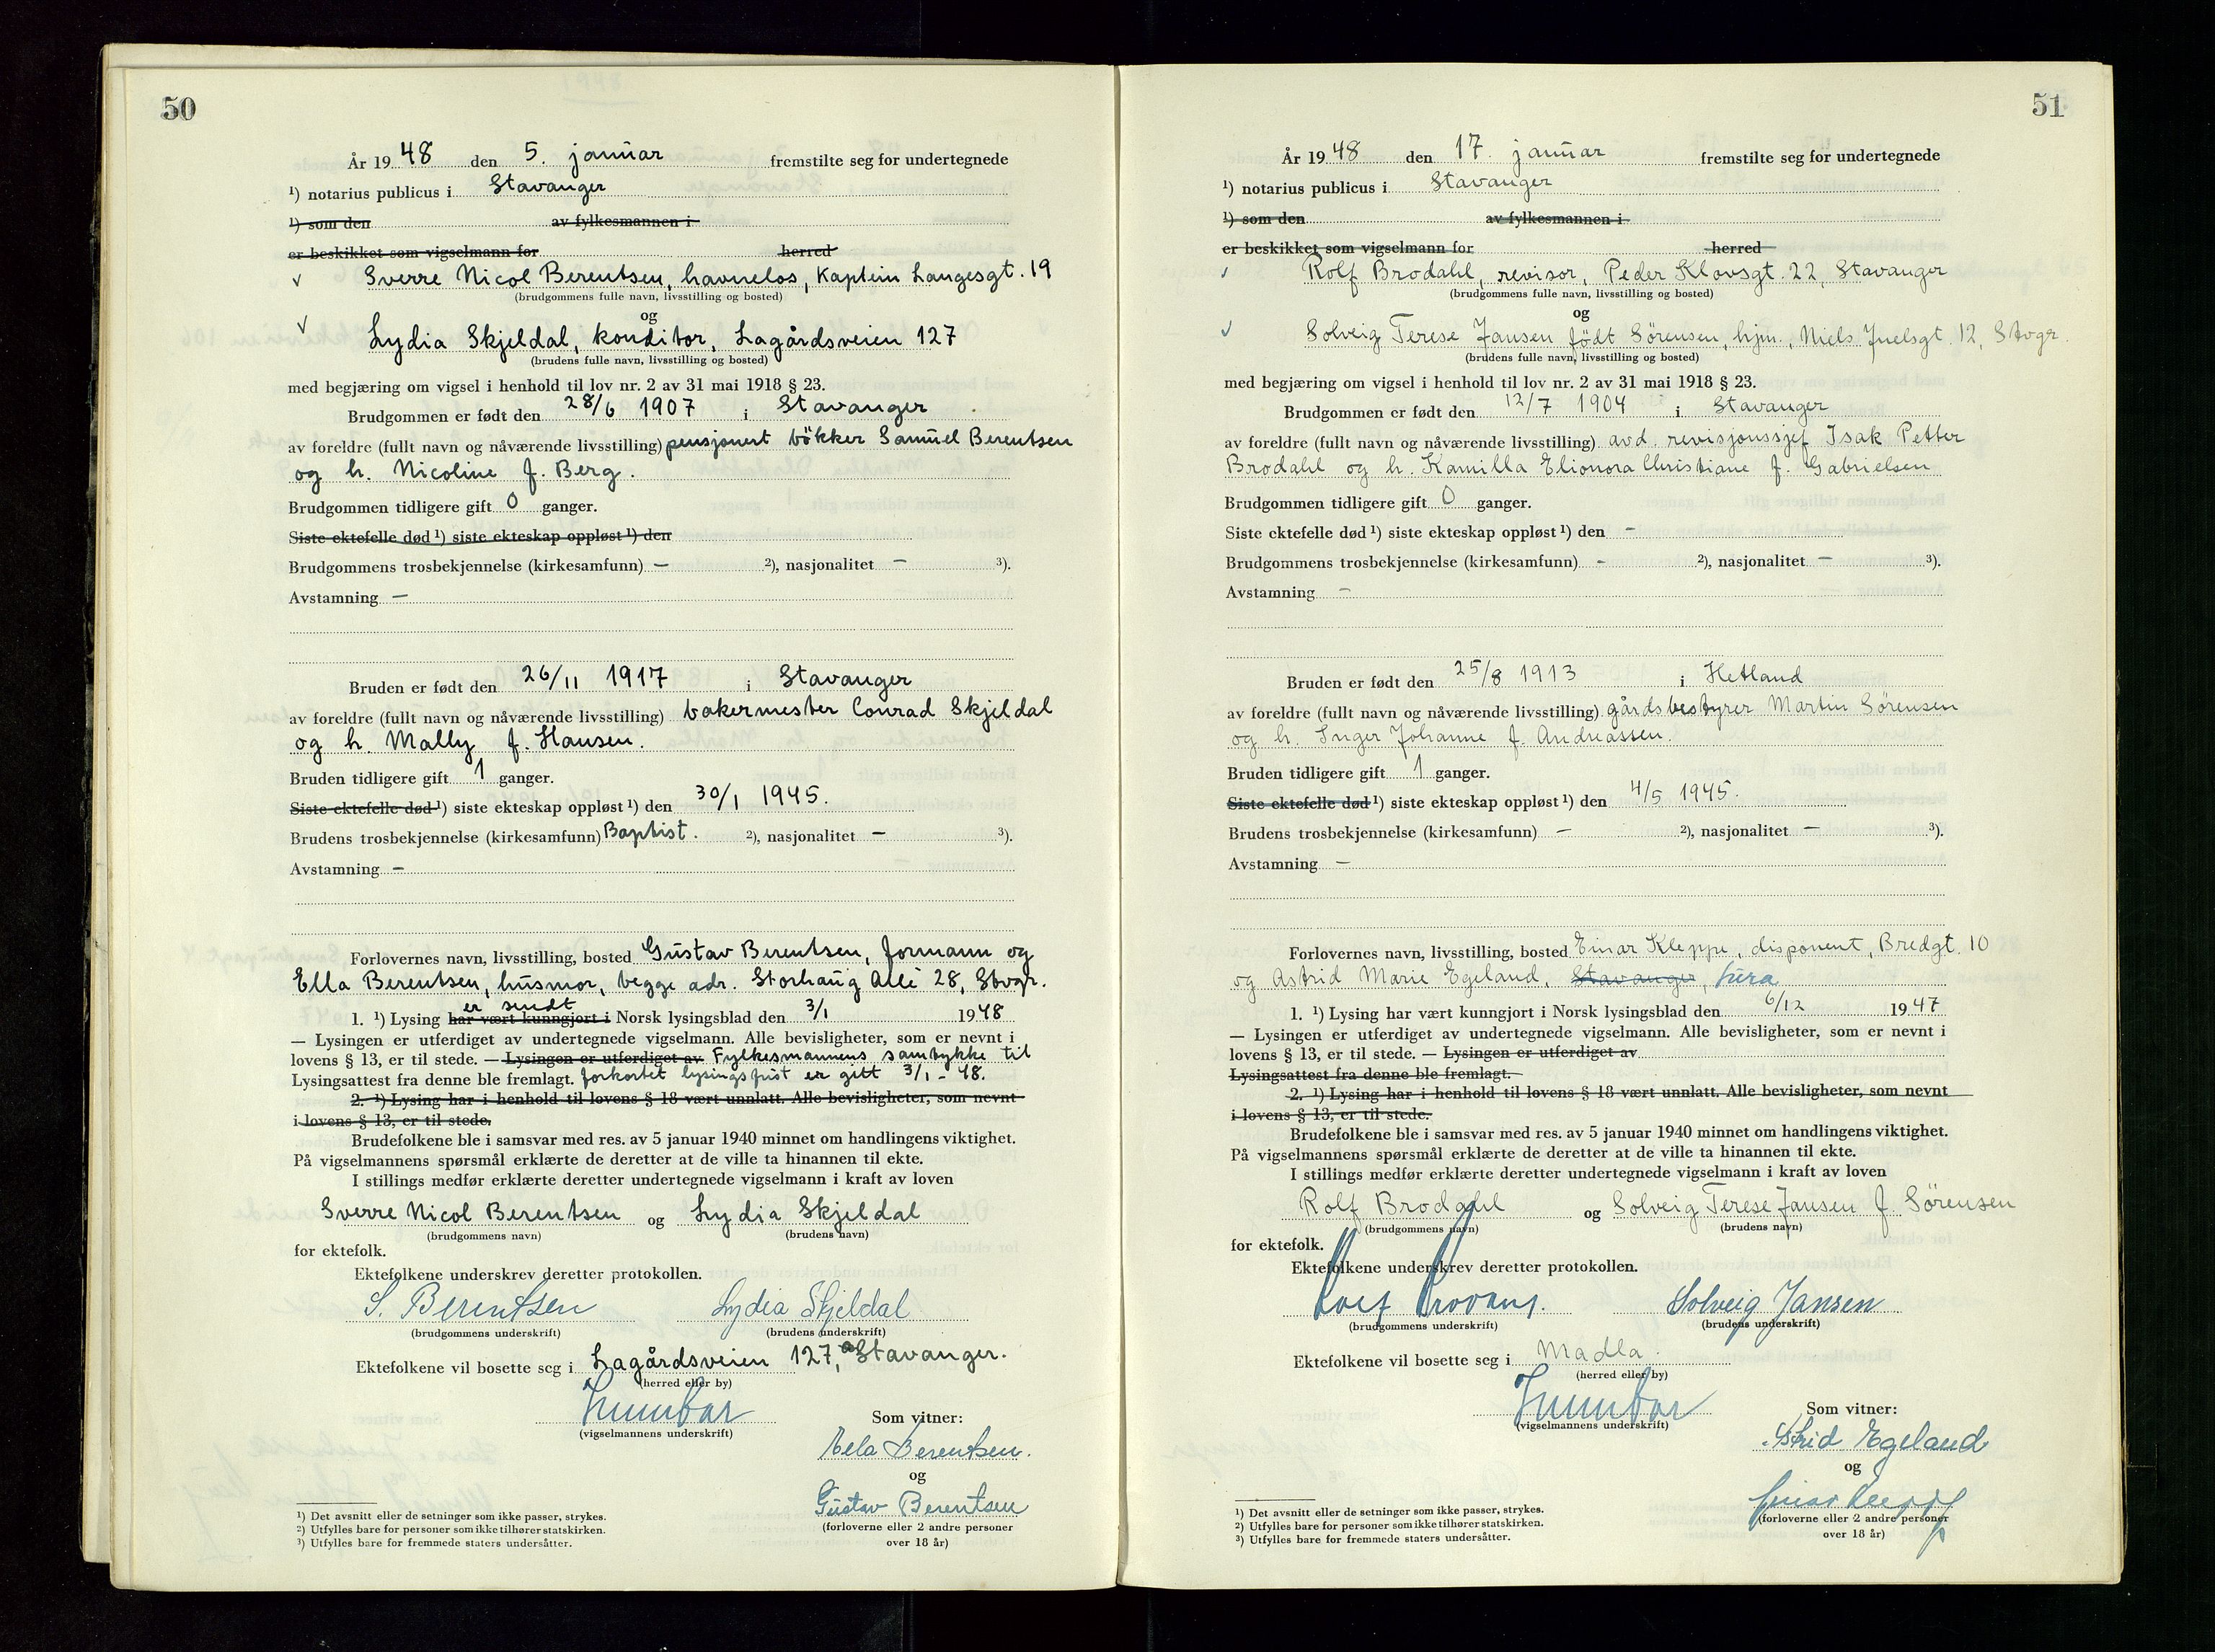 50
År 1948 den 5. januar fremstilte seg for undertegnede
¹) notarius publicus i Stavanger
¹) som den av fylkesmannen i
er beskikket som vigselmann for herred
√ Sverre Nicol Berentsen, havnelos, Kaptein Langesgt. 19
(brudgommens fulle navn, livsstilling og bosted)
og
√ Lydia Skjeldal, konditor, Lagårdsveien 127
(brudens fulle navn, livsstilling og bosted)
med begjæring om vigsel i henhold til lov nr. 2 av 31 mai 1918 § 23.
Brudgommen er født den 28/6 1907 i Stavanger
av foreldre (fullt navn og nåværende livsstilling) pensjonert bökker Samuel Berentsen
og h. Nicoline f. Berg.
Brudgommen tidligere gift 0 ganger.
Siste ektefelle død ¹) siste ekteskap oppløst ¹) den
Brudgommens trosbekjennelse (kirkesamfunn) — ²), nasjonalitet — ³).
Avstamning —
Bruden er født den 26/11 1917 i Stavanger
av foreldre (fullt navn og nåværende livsstilling) bakermester Conrad Skjeldal
og h. Mally f. Hansen.
Bruden tidligere gift 1 ganger.
Siste ektefelle død ¹) siste ekteskap oppløst ¹) den 30/1 1945.
Brudens trosbekjennelse (kirkesamfunn) Baptist. ²), nasjonalitet — ³).
Avstamning —
Forlovernes navn, livsstilling, bosted Gustav Berentsen, formann og
Ella Berentsen, husmor, begge adr. Storhaug Allé 28, Stvgr.
er sendt
1. ¹) Lysing har vært kunngjort i Norsk lysingsblad den 3/1 1948
— Lysingen er utferdiget av undertegnede vigselmann. Alle bevisligheter, som er nevnt i
lovens § 13, er til stede. — Lysingen er utferdiget av Fylkesmannens samtykke til
Lysingsattest fra denne ble fremlagt. forkortet lysingsfrist er gitt 3/1 - 48.
2. ¹) Lysing har i henhold til lovens § 18 vært unnlatt. Alle bevisligheter, som nevnt
i lovens § 13, er til stede.
Brudefolkene ble i samsvar med res. av 5 januar 1940 minnet om handlingens viktighet.
På vigselmannens spørsmål erklærte de deretter at de ville ta hinannen til ekte.
I stillings medfør erklærte deretter undertegnede vigselmann i kraft av loven
Sverre Nicol Berentsen og Lydia Skjeldal
(brudgommens navn) (brudens navn)
for ektefolk.
Ektefolkene underskrev deretter protokollen.
S. Berentsen Lydia Skjeldal
(brudgommens underskrift) (brudens underskrift)
Ektefolkene vil bosette seg i Lagårdsveien 127, Stavanger.
(herred eller by)
(vigselmannens underskrift)
Som vitner:
Ella Berentsen.
og
Gustav Berentsen
(forloverne eller 2 andre personer
over 18 år)
¹) Det avsnitt eller de setninger som ikke passer, strykes.
²) Utfylles bare for personer som ikke tilhører statskirken.
³) Utfylles bare for fremmede staters undersåtter.
51
År 1948 den 17. januar fremstilte seg for undertegnede
¹) notarius publicus i Stavanger
¹) som den av fylkesmannen i
er beskikket som vigselmann for herred
√ Rolf Brodahl, revisor, Peder Klovsgt. 22, Stavanger
(brudgommens fulle navn, livsstilling og bosted)
og
√ Solveig Terese Jansen født Sörensen, hjm., Niels Juelsgt. 12, Stvgr.
(brudens fulle navn, livsstilling og bosted)
med begjæring om vigsel i henhold til lov nr. 2 av 31 mai 1918 § 23.
Brudgommen er født den 12/7 1904 i Stavanger
av foreldre (fullt navn og nåværende livsstilling) avd. revisjonssjef Isak Petter
Brodahl og h. Kamilla Elionora Christiane f. Gabrielsen
Brudgommen tidligere gift 0 ganger.
Siste ektefelle død ¹) siste ekteskap oppløst ¹) den —
Brudgommens trosbekjennelse (kirkesamfunn) — ²), nasjonalitet — ³).
Avstamning —
Bruden er født den 25/8 1913 i Hetland
av foreldre (fullt navn og nåværende livsstilling) gårdsbestyrer Martin Sörensen
og h. Inger Johanne f. Andreassen.
Bruden tidligere gift 1 ganger.
Siste ektefelle død ¹) siste ekteskap oppløst ¹) den 4/5 1945.
Brudens trosbekjennelse (kirkesamfunn) — ²), nasjonalitet — ³).
Avstamning —
Forlovernes navn, livsstilling, bosted Einar Kleppe, disponent, Bredgt. 10
og Astrid Marie Egeland, Stavanger,
1. ¹) Lysing har vært kunngjort i Norsk lysingsblad den 6/12 1947
— Lysingen er utferdiget av undertegnede vigselmann. Alle bevisligheter, som er nevnt i
lovens § 13, er til stede. — Lysingen er utferdiget av
Lysingsattest fra denne ble fremlagt.
2. ¹) Lysing har i henhold til lovens § 18 vært unnlatt. Alle bevisligheter, som nevnt
i lovens § 13, er til stede.
Brudefolkene ble i samsvar med res. av 5 januar 1940 minnet om handlingens viktighet.
På vigselmannens spørsmål erklærte de deretter at de ville ta hinannen til ekte.
I stillings medfør erklærte deretter undertegnede vigselmann i kraft av loven
Rolf Brodahl og Solveig Terese Jansen f. Sörensen
(brudgommens navn) (brudens navn)
for ektefolk.
Ektefolkene underskrev deretter protokollen.
Rolf Brodahl. Solveig Jansen
(brudgommens underskrift) (brudens underskrift)
Ektefolkene vil bosette seg i Madla.
(herred eller by)
(vigselmannens underskrift)
Som vitner:
Astrid Egeland
og
Einar Kleppe
(forloverne eller 2 andre personer
over 18 år)
¹) Det avsnitt eller de setninger som ikke passer, strykes.
²) Utfylles bare for personer som ikke tilhører statskirken.
³) Utfylles bare for fremmede staters undersåtter.